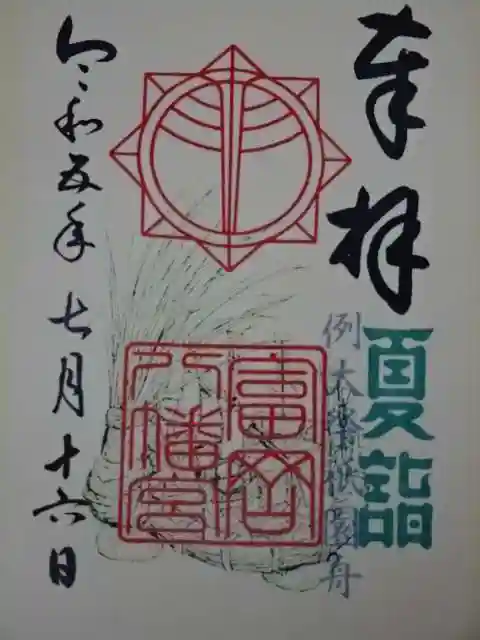 奉拝
夏詣
例大祭祇園舟
富岡
八幡宮
令和五年七月十六日